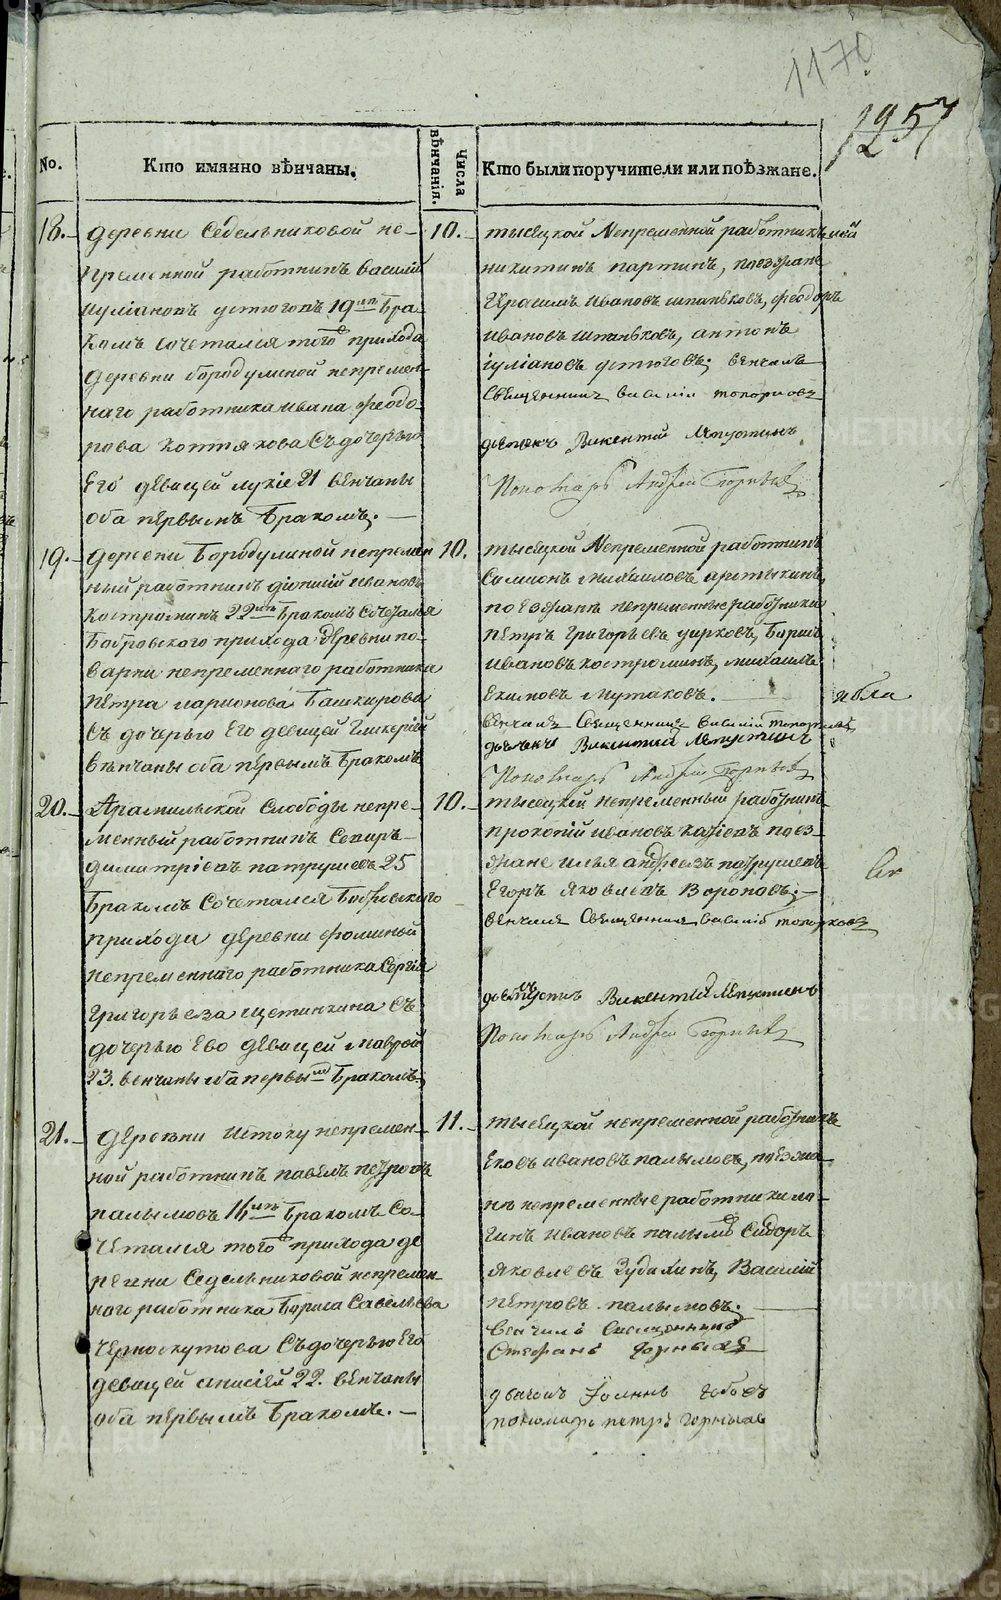 1170
1257
No.
Кто имянно вѣнчаны.
Числа вѣнчанія.
Кто были поручители или поѣзжане.
18.
деревни Седельниковой не-
пременной работникъ василий
иулиановъ устюговъ 19 лѣтъ бра-
комъ сочетался того прихода
деревни бородулиной непремен-
наго работника ивана феодо-
рова коптякова съ дочерью
его девицей лукіе 21 венчаны
оба первымъ бракомъ.
10.
тысяцкой непременной работникъ
никитинъ партинъ, поезжане
герасимъ ивановъ шпаньковъ, феодоръ
ивановъ шпаньковъ, антонъ
іуліановъ устюговъ; венчалъ
священникъ василій топорковъ
дьячекъ Викентий Лепустинъ
Пономарь Андрей Горныхъ
19.
деревни Бородулиной непремен
ный работникъ діонисий ивановъ
костроминъ 22 лѣтъ бракомъ сочетался
бобровского прихода деревни по-
варни непременнаго работника
петра ларионова Башкирова
съ дочерью его девицей гликерией
венчаны оба первымъ бракомъ
10.
тысяцкой непременной работникъ
Симионъ михайловъ
поезжана непременные работники
петръ григорьевъ чирковъ, борисъ
ивановъ костроминъ, михаилъ
екимовъ
венчалъ священникъ василий топорковъ
дьячекъ Викентий Лепустинъ
Пономарь Андрей Горныхъ
20.
Арамильской слободы непре-
менный работникъ
димитріевъ патрушевъ 25
бракомъ сочетался бобровского
прихода деревни фоминой
непременнаго работника Сергия
григорьева щетинкина съ
дочерью ево девицей маврой
23. венчаны оба первымъ бракомъ.
10.
тысяцкий непременный работникъ
прокопий ивановъ поез-
жане илья андреевъ патрушевъ
Егоръ яковлевъ Вороновъ.
венчалъ священникъ василий топорковъ
Викентий Лепустинъ
Пономарь Андрей Горныхъ
21.
деревни истоку непремен-
ной работникъ павелъ петровъ
палымовъ 16 лѣтъ бракомъ со-
четался того прихода де
ревни Седельниковой непремен-
наго работника Бориса Савельева
черноскутова съ дочерью его
девицей анисией 22. венчаны
оба первымъ бракомъ.
11.
тысяцкой непременной работникъ
ивановъ палымовъ, поезжа-
не непременные работники ло-
гинъ ивановъ палымовъ Сидоръ
яковлевъ Зудихинъ, Василий
петровъ палымовъ.
венчалъ священникъ
Стефанъ Горныхъ
дьячокъ Іоаннъ
пономарь петръ горныхъ